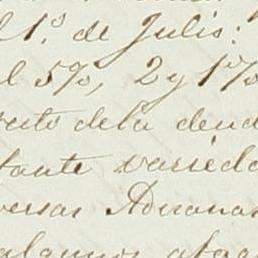 l 1.º de Julio:
l 5%, 2 y 1%
ento dela deud
tante variedad
versas Aduanas
algunos